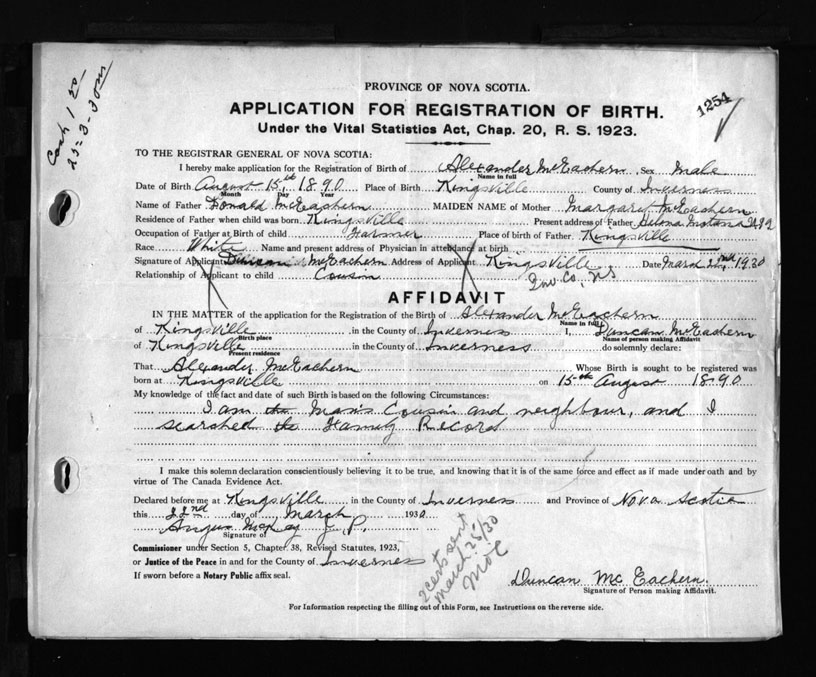 Cash 1 50
25-3-30 m
1254
PROVINCE OF NOVA SCOTIA.
APPLICATION FOR REGISTRATION OF BIRTH.
Under the Vital Statistics Act, Chap. 20, R. S. 1923.
TO THE REGISTRAR GENERAL OF NOVA SCOTIA:
I hereby make application for the Registration of Birth of Alexander McEachern Sex Male
Name in full
Date of Birth August 15th 1890 Place of Birth Kingsville County of Inverness
Month Day Year
Name of Father Donald McEachern MAIDEN NAME of Mother Margaret McEachern
Residence of Father when child was born Kingsville Present address of Father Helena Montana
Occupation of Father at Birth of child Farmer Place of birth of Father Kingsville
Race White Name and present address of Physician in attendance at birth
Signature of Applicant Duncan McEachern Address of Applicant Kingsville Date March 22nd 1930
Relationship of Applicant to child Cousin Inv. Co, NS
AFFIDAVIT
IN THE MATTER of the application for the Registration of the Birth of Alexander McEachern
Name in full
of Kingsville in the County of Inverness I, Duncan McEachern
Birth place Name of person making Affidavit
of Kingsville in the County of Inverness do solemnly declare:
Present residence
That Alexander McEachern Whose Birth is sought to be registered was
born at Kingsville on 15th August 1890
My knowledge of the fact and date of such Birth is based on the following Circumstances:
I am the Man's Cousin and neighbour, and I
searched the Family Record
I make this solemn declaration conscientiously believing it to be true, and knowing that it is of the same force and effect as if made under oath and by
virtue of The Canada Evidence Act.
Declared before me at Kingsville in the County of Inverness and Province of Nova Scotia
this 22nd day of March 1930
Angus McKay J.P.
Signature of
Commissioner under Section 5, Chapter 38, Revised Statutes, 1923,
or Justice of the Peace in and for the County of Inverness
If sworn before a Notary Public affix seal.
2 certs sent
March 25/30
MOC
Duncan McEachern.
Signature of Person making Affidavit.
For Information respecting the filling out of this Form, see Instructions on the reverse side.